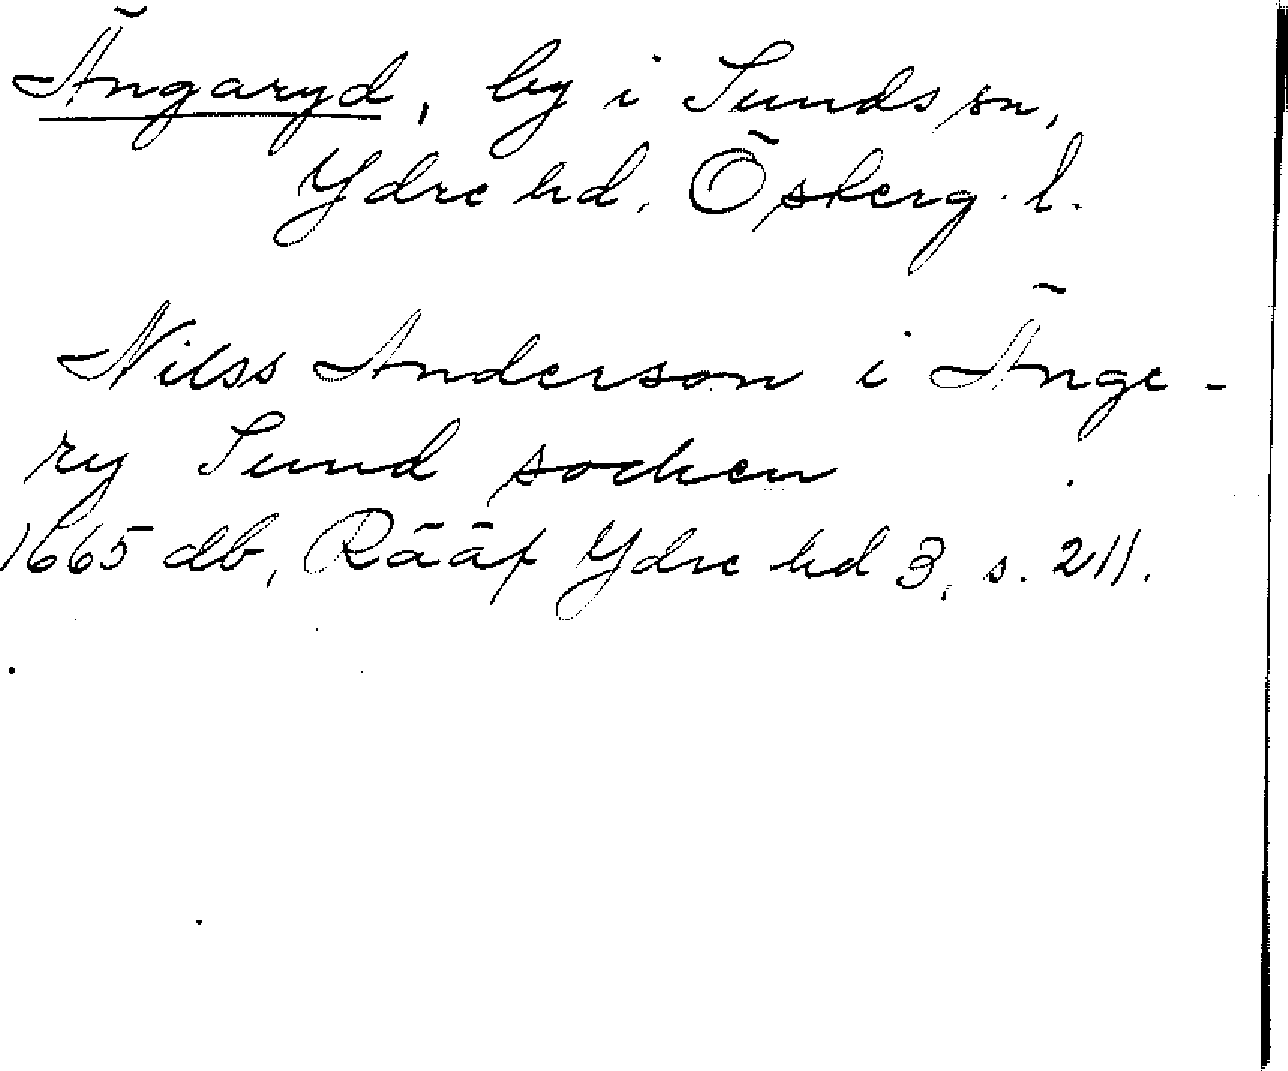 Ängaryd, by i Sunds sn,
Ydre hd, Östergl.
Nilss Anderson i Änge-
ry Sund socken
1665 db, Rääf Ydre hd 3, s. 211.